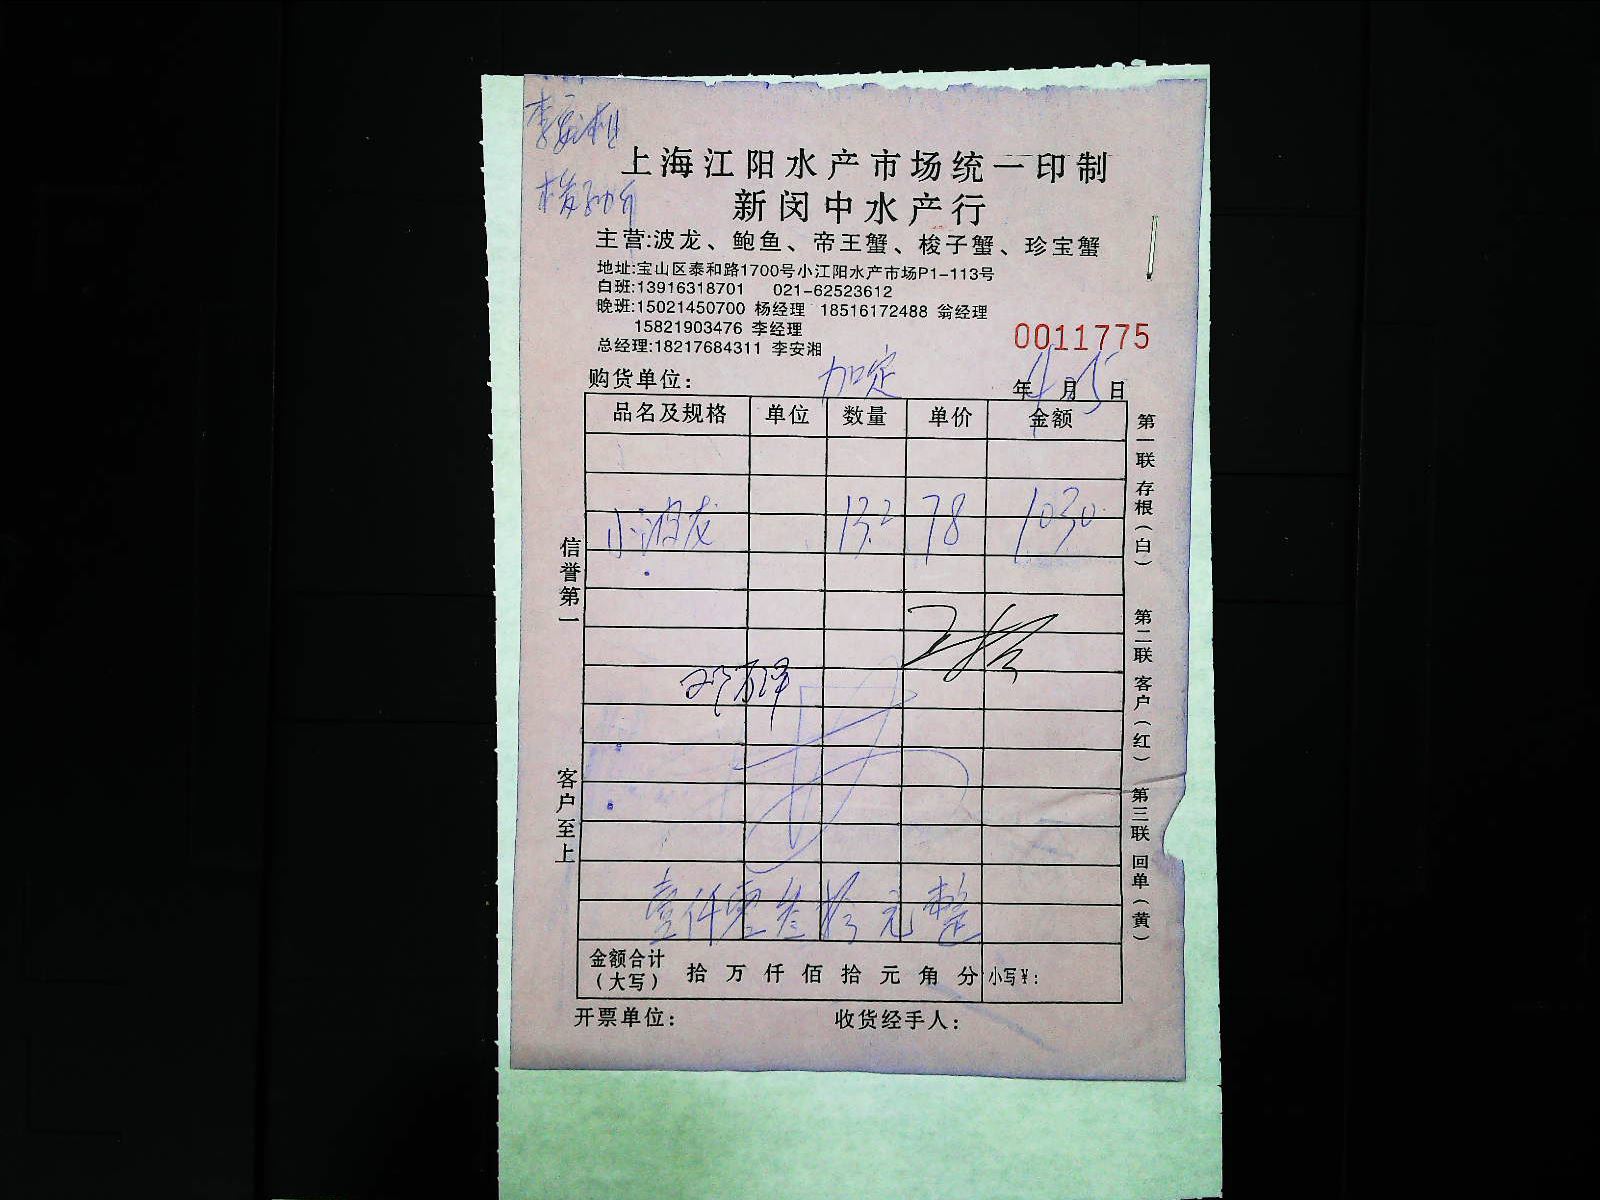 上海江阳水产市场统一印制
新闵中水产行
主营:波龙、鲍鱼、帝王蟹、梭子蟹、珍宝蟹
地址:宝山区泰和路1700号小江阳水产市场P1-113号
白班:13916318701 021-62523612
晚班:15021450700 杨经理 18516172488 翁经理
15821903476 李经理
总经理:18217684311 李安湘
0011775
购货单位: 加定 年 4 月 25 日
品名及规格 单位 数量 单价 金额
小波龙 13.2 78 1030
壹仟零叁拾元整
金额合计(大写) 拾 万 仟 佰 拾 元 角 分 小写¥:
开票单位: 收货经手人:
信誉第一
客户至上
第一联 存根(白)
第二联 客户(红)
第三联 回单(黄)